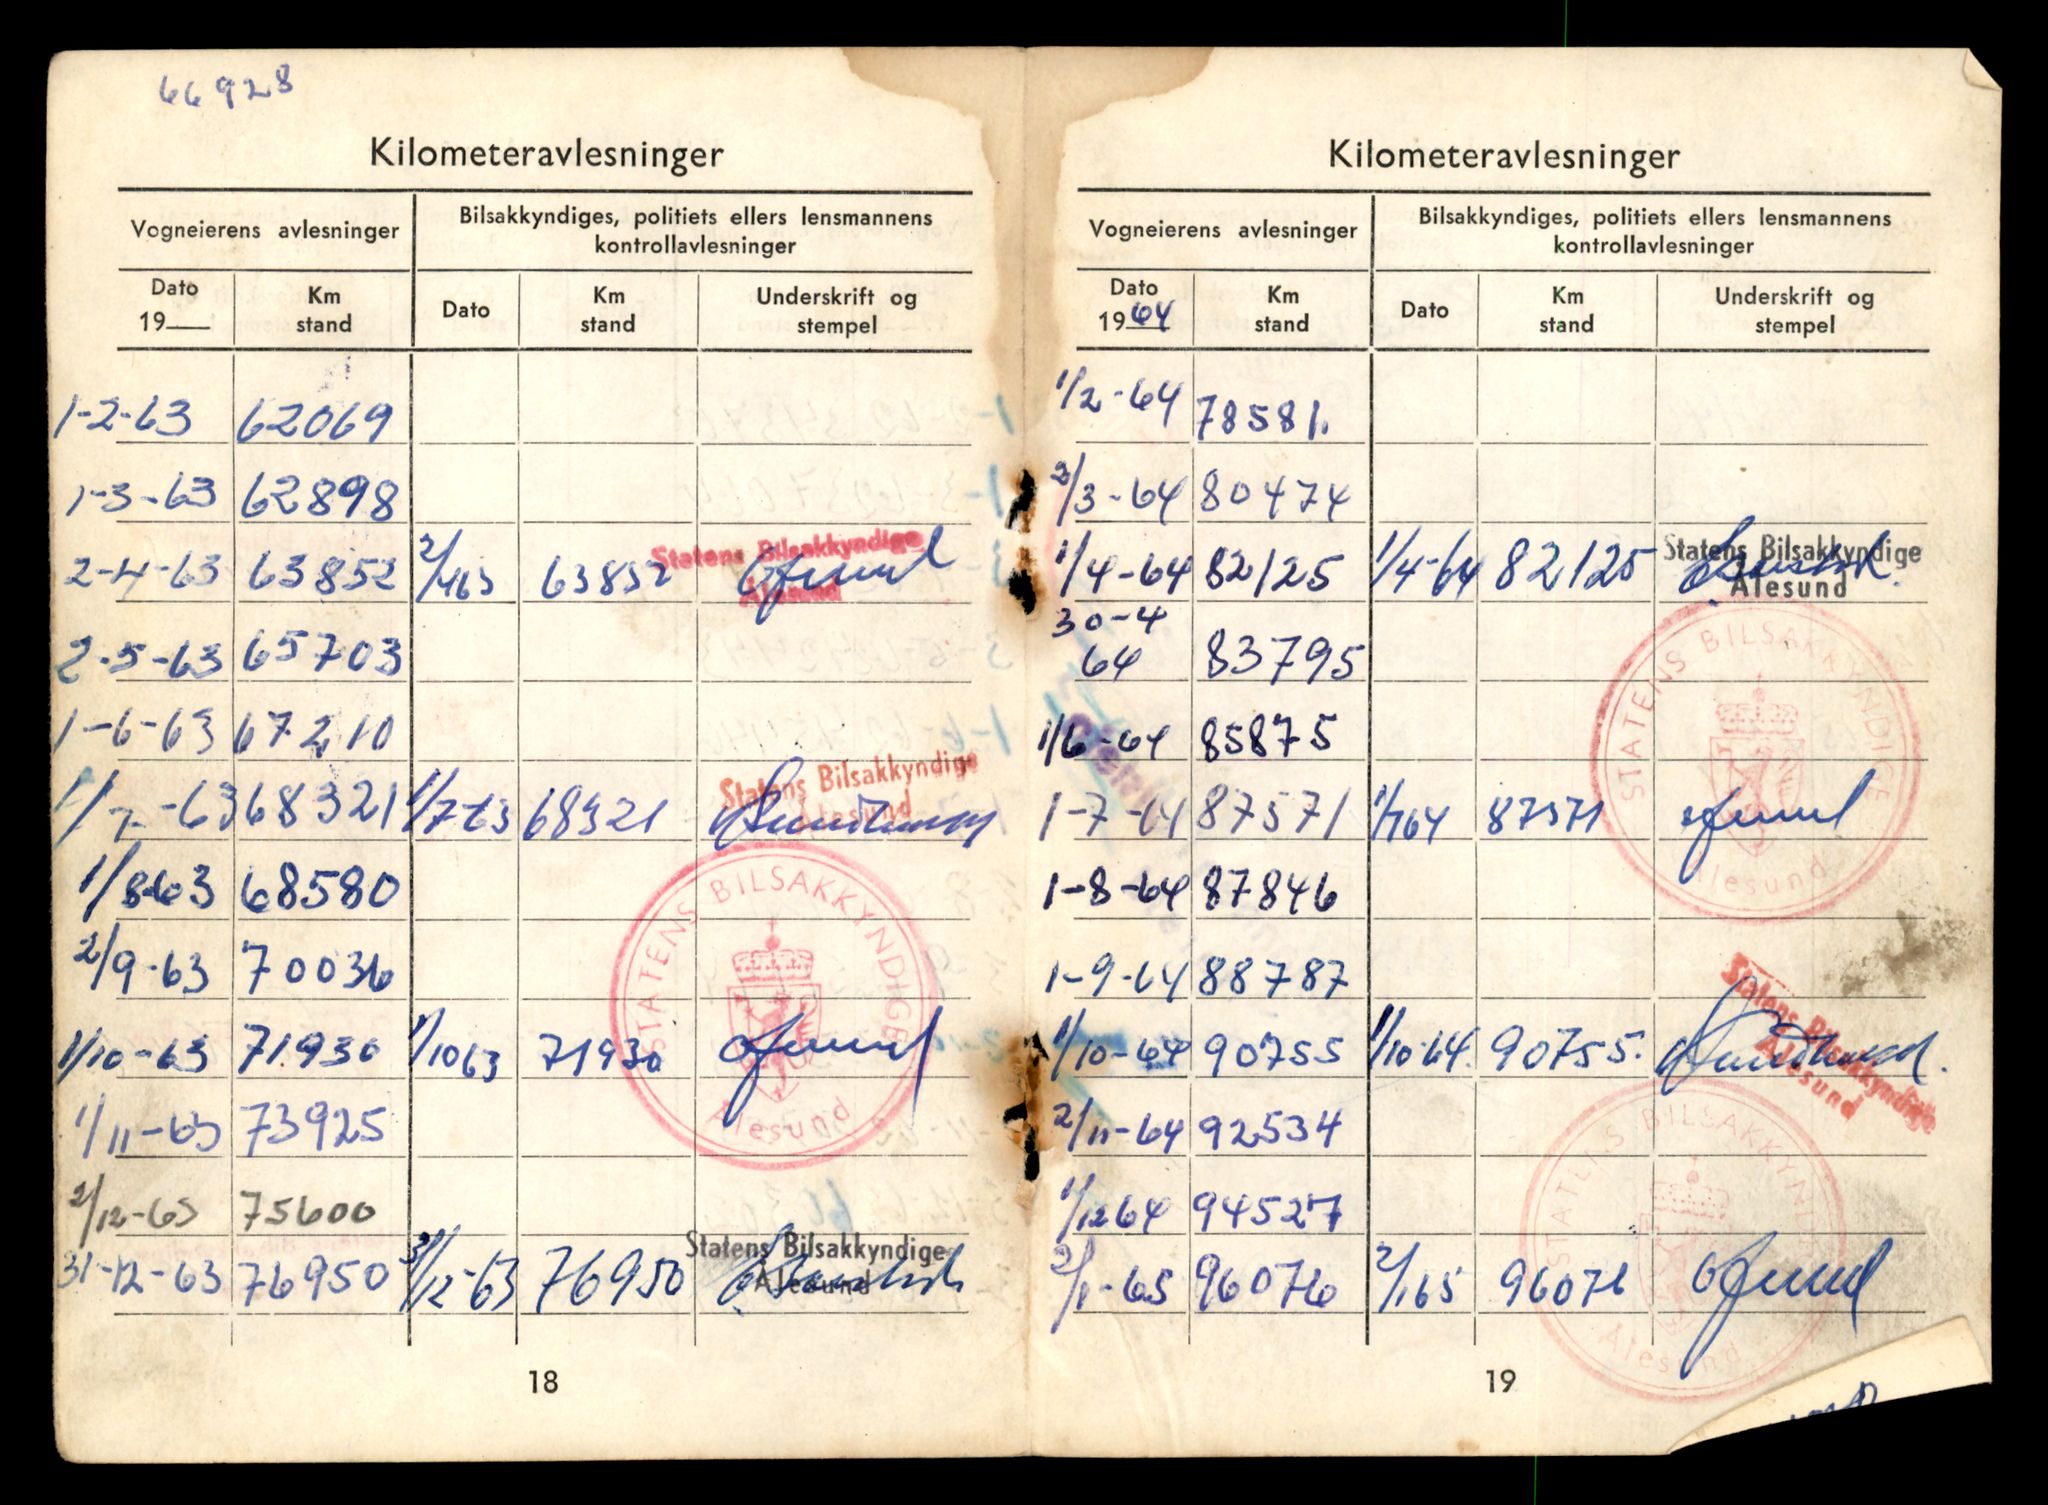 66928
Kilometeravlesninger
Vogneierens avlesninger
Bilsakkyndiges, politiets ellers lensmannens
kontrollavlesninger
Dato
19
Km
stand
Dato
Km
stand
Underskrift og
stempel
1-2-63 62069
1-3-63 62898
2-4-63 63852 2/463 63852
Statens Bilsakkyndige
Ålesund
2-5-63 65703
1-6-63 67210
1/7-63 68321 1/7-63 68321
Statens Bilsakkyndige
Ålesund
1/8-63 68580
2/9-63 70036
1/10-63 71930 1/1063 71930
STATENS BILSAKKYNDIGE
Ålesund
1/11-63 73925
2/12-63 75600
31-12-63 76950 31/12-63 76950
Statens Bilsakkyndige
Ålesund
18
Kilometeravlesninger
Vogneierens avlesninger
Bilsakkyndiges, politiets ellers lensmannens
kontrollavlesninger
Dato
1964
Km
stand
Dato
Km
stand
Underskrift og
stempel
1/2-64 78581.
2/3-64 80474
1/4-64 82125 1/4-64 82125
Statens Bilsakkyndige
Ålesund
30-4
64 83795
1/6-64 85875
1-7-64 87571 1/764 87571
STATENS BILSAKKYNDIGE
Ålesund
1-8-64 87846
1-9-64 88787
1/10-64 90755 1/10-64. 90755.
Statens Bilsakkyndige
Ålesund
2/11-64 92534
1/1264 94527
2/1-65 96076 2/165 96076
STATENS BILSAKKYNDIGE
Ålesund
19